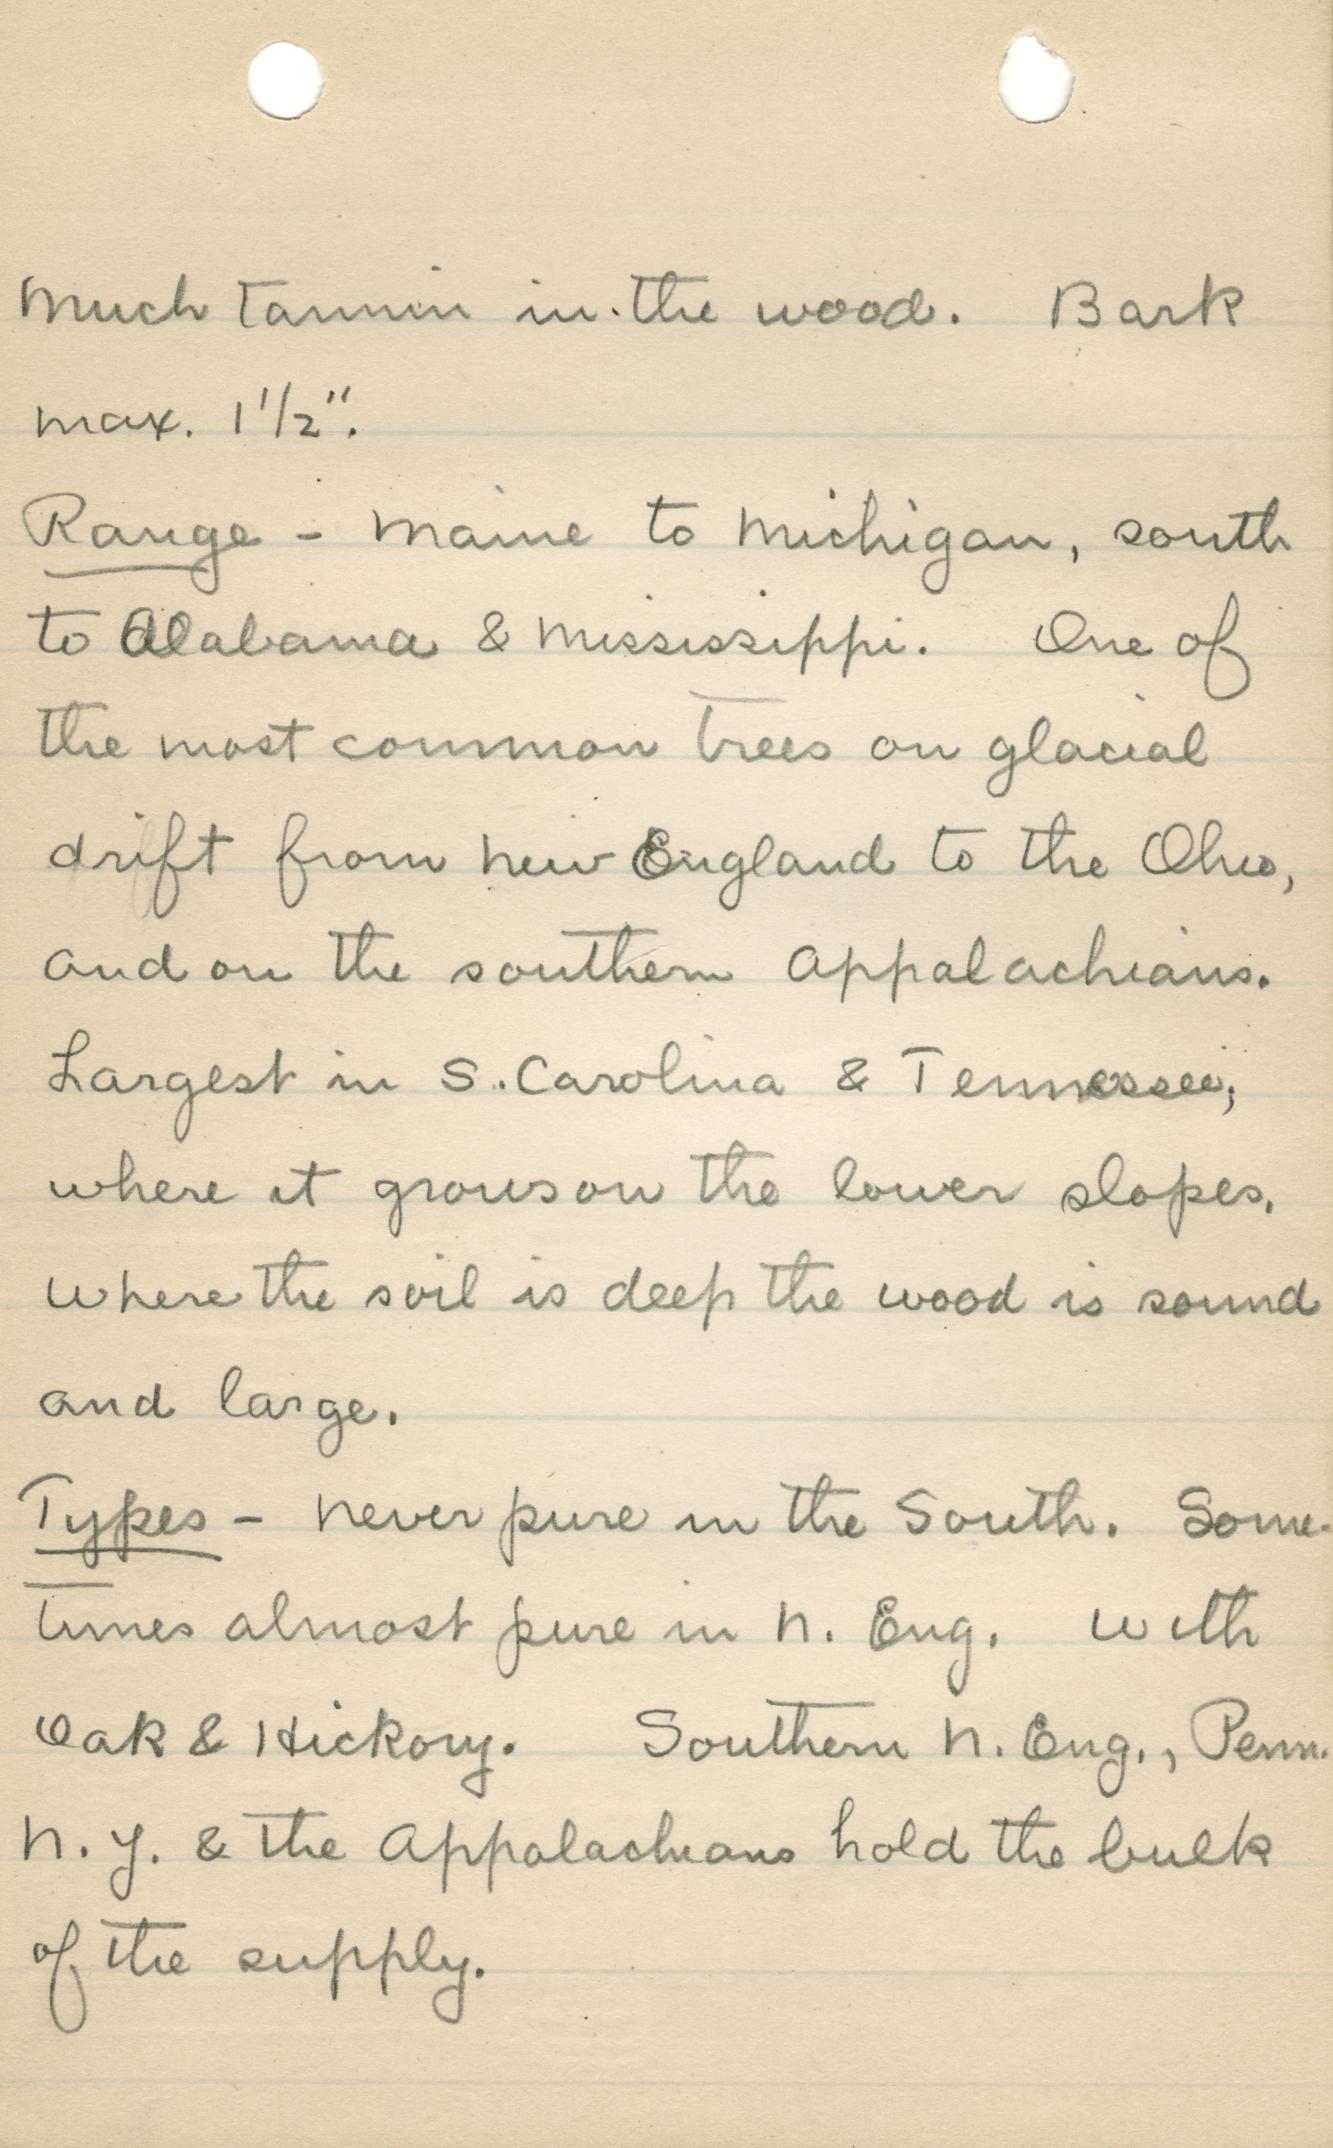 Much tannin in the wood. Bark
max. 1 1/2".
Range - Maine to Michigan, south
to Alabama & Mississippi. One of
the most common trees on glacial
drift from New England to the Ohio,
and on the southern Appalachians.
Largest in S. Carolina & Tennessee,
where it grows on the lower slopes.
Where the soil is deep the wood is sound
and large.
Types - Never pure in the South. Some-
times almost pure in N. Eng. With
Oak & Hickory. Southern N. Eng., Penn.
N. Y. & the Appalachians hold the bulk
of the supply.